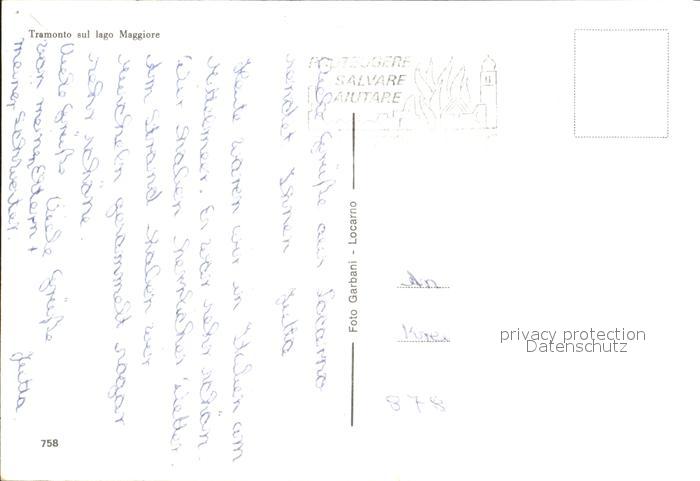 Tramonto sul lago Maggiore
PROTEGGERE
SALVARE
AIUTARE
Viele Grüße aus Locarno
sendet Ihnen Jutta
Heute waren wir in Italien am
Mittelmeer. Es war sehr schön.
Wir haben herrliches Wetter.
Am Strand haben wir
Muscheln gesammelt sogar
sehr schöne.
Viele Grüße Viele Grüße Jutta.
von meinen Eltern +
meiner Schwester.
Foto Garbani - Locarno
An
privacy protection
Datenschutz
878
758